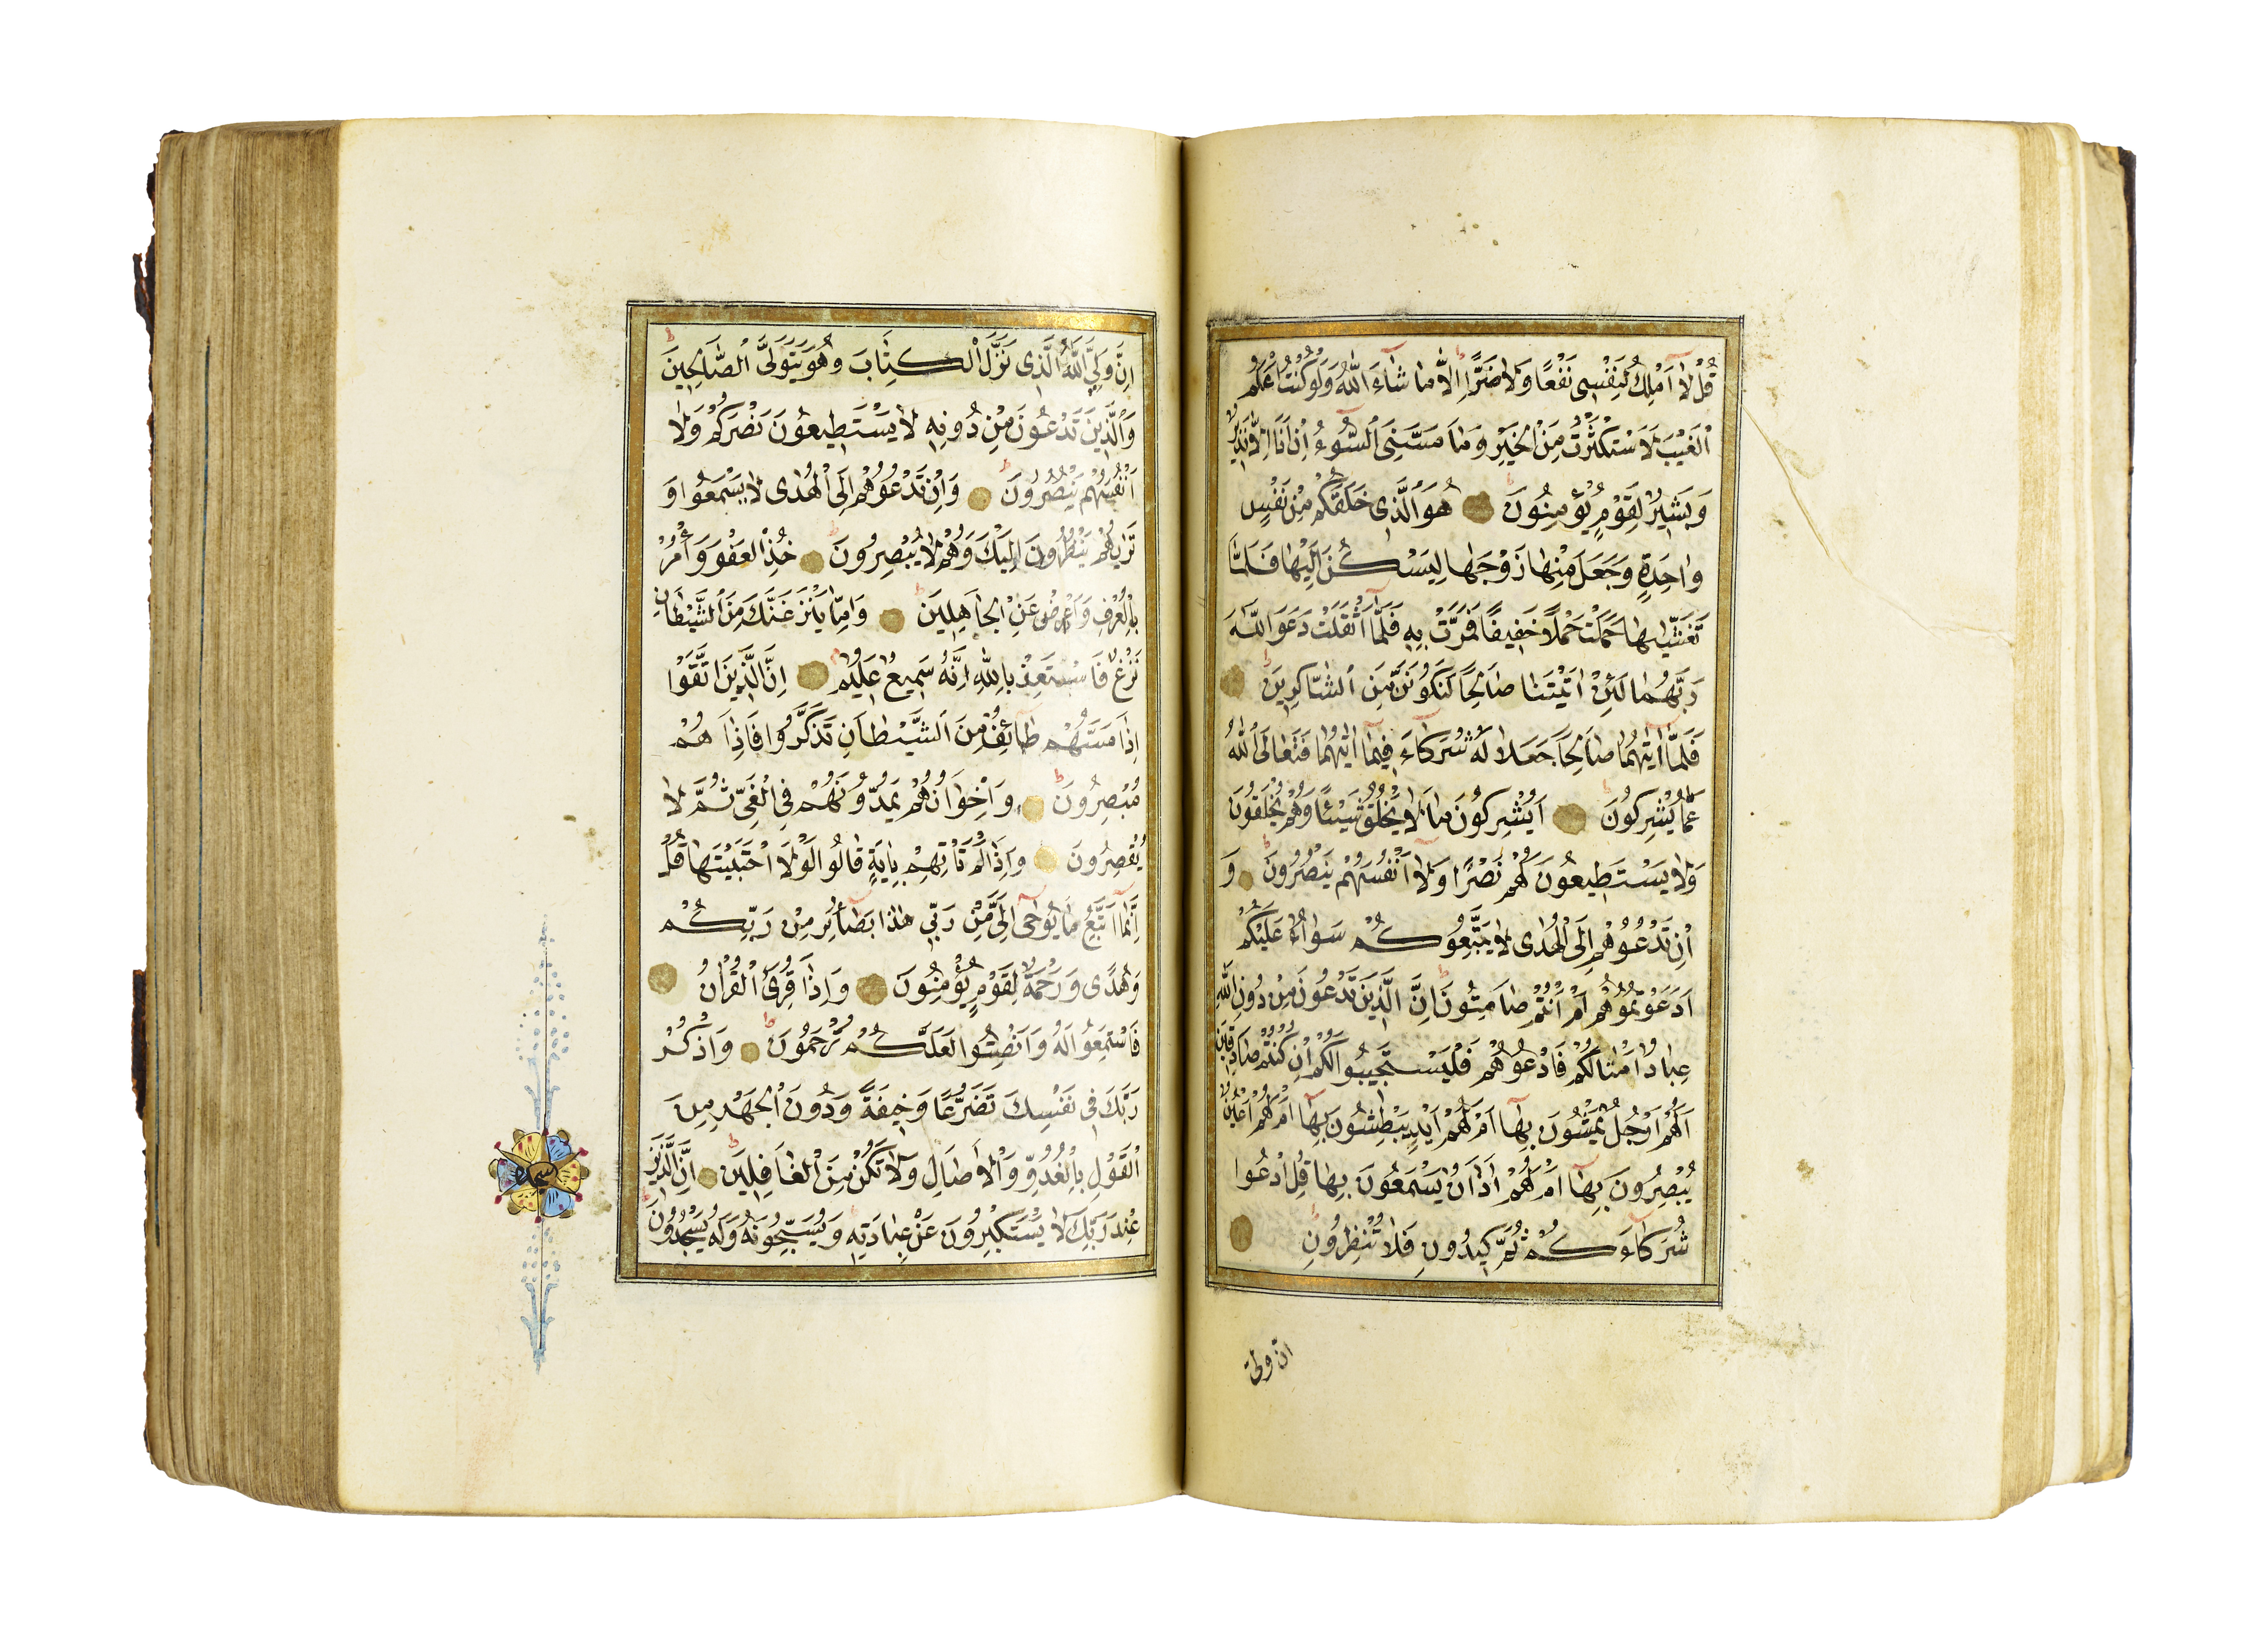 قُلْ لَا اَمْلِكُ لِنَفْسِى نَفْعًا وَلَا ضَرًّا اِلَّا مَا شَاءَ اللّٰهُ وَلَوْ كُنْتُ اَعْلَمُ
الْغَيْبَ لَاسْتَكْثَرْتُ مِنَ الْخَيْرِ وَمَا مَسَّنِىَ السُّوءُ اِنْ اَنَا اِلَّا نَذِيرٌ
وَبَشِيرٌ لِقَوْمٍ يُؤْمِنُونَ هُوَ الَّذِى خَلَقَكُمْ مِنْ نَفْسٍ
وَاحِدَةٍ وَجَعَلَ مِنْهَا زَوْجَهَا لِيَسْكُنَ اِلَيْهَا فَلَمَّا
تَغَشّٰيهَا حَمَلَتْ حَمْلًا خَفِيفًا فَمَرَّتْ بِهِ فَلَمَّا اَثْقَلَتْ دَعَوَا اللّٰهَ
رَبَّهُمَا لَئِنْ اٰتَيْتَنَا صَالِحًا لَنَكُونَنَّ مِنَ الشَّاكِرِينَ
فَلَمَّا اٰتٰيهُمَا صَالِحًا جَعَلَا لَهُ شُرَكَاءَ فِيمَا اٰتٰيهُمَا فَتَعَالَى اللّٰهُ
عَمَّا يُشْرِكُونَ اَيُشْرِكُونَ مَا لَا يَخْلُقُ شَيْئًا وَهُمْ يُخْلَقُونَ
وَلَا يَسْتَطِيعُونَ لَهُمْ نَصْرًا وَلَا اَنْفُسَهُمْ يَنْصُرُونَ وَ
اِنْ تَدْعُوهُمْ اِلَى الْهُدٰى لَا يَتَّبِعُوكُمْ سَوَاءٌ عَلَيْكُمْ
اَدَعَوْتُمُوهُمْ اَمْ اَنْتُمْ صَامِتُونَ اِنَّ الَّذِينَ تَدْعُونَ مِنْ دُونِ اللّٰهِ
عِبَادٌ اَمْثَالُكُمْ فَادْعُوهُمْ فَلْيَسْتَجِيبُوا لَكُمْ اِنْ كُنْتُمْ صَادِقِينَ
اَلَهُمْ اَرْجُلٌ يَمْشُونَ بِهَا اَمْ لَهُمْ اَيْدٍ يَبْطِشُونَ بِهَا اَمْ لَهُمْ اَعْيُنٌ
يُبْصِرُونَ بِهَا اَمْ لَهُمْ اٰذَانٌ يَسْمَعُونَ بِهَا قُلِ ادْعُوا
شُرَكَاءَكُمْ ثُمَّ كِيدُونِ فَلَا تُنْظِرُونِ
ان ولى
اِنَّ وَلِيِّىَ اللّٰهُ الَّذِى نَزَّلَ الْكِتَابَ وَهُوَ يَتَوَلَّى الصَّالِحِينَ
وَالَّذِينَ تَدْعُونَ مِنْ دُونِهِ لَا يَسْتَطِيعُونَ نَصْرَكُمْ وَلَا
اَنْفُسَهُمْ يَنْصُرُونَ وَاِنْ تَدْعُوهُمْ اِلَى الْهُدٰى لَا يَسْمَعُوا وَ
تَرٰيهُمْ يَنْظُرُونَ اِلَيْكَ وَهُمْ لَا يُبْصِرُونَ خُذِ الْعَفْوَ وَأْمُرْ
بِالْعُرْفِ وَاَعْرِضْ عَنِ الْجَاهِلِينَ وَاِمَّا يَنْزَغَنَّكَ مِنَ الشَّيْطَانِ
نَزْغٌ فَاسْتَعِذْ بِاللّٰهِ اِنَّهُ سَمِيعٌ عَلِيمٌ اِنَّ الَّذِينَ اتَّقَوْا
اِذَا مَسَّهُمْ طَائِفٌ مِنَ الشَّيْطَانِ تَذَكَّرُوا فَاِذَا هُمْ
مُبْصِرُونَ وَاِخْوَانُهُمْ يَمُدُّونَهُمْ فِى الْغَىِّ ثُمَّ لَا
يُقْصِرُونَ وَاِذَا لَمْ تَأْتِهِمْ بِاٰيَةٍ قَالُوا لَوْلَا اجْتَبَيْتَهَا قُلْ
اِنَّمَا اَتَّبِعُ مَا يُوحٰى اِلَىَّ مِنْ رَبِّى هٰذَا بَصَائِرُ مِنْ رَبِّكُمْ
وَهُدًى وَرَحْمَةٌ لِقَوْمٍ يُؤْمِنُونَ وَاِذَا قُرِئَ الْقُرْاٰنُ
فَاسْتَمِعُوا لَهُ وَاَنْصِتُوا لَعَلَّكُمْ تُرْحَمُونَ وَاذْكُرْ
رَبَّكَ فِى نَفْسِكَ تَضَرُّعًا وَخِيفَةً وَدُونَ الْجَهْرِ مِنَ
الْقَوْلِ بِالْغُدُوِّ وَالْاٰصَالِ وَلَا تَكُنْ مِنَ الْغَافِلِينَ اِنَّ الَّذِينَ
عِنْدَ رَبِّكَ لَا يَسْتَكْبِرُونَ عَنْ عِبَادَتِهِ وَيُسَبِّحُونَهُ وَلَهُ يَسْجُدُونَ
سجده